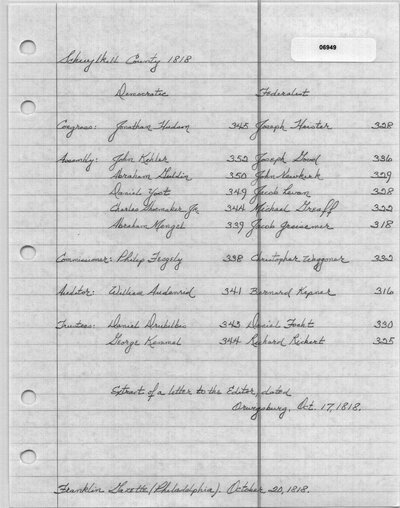 06949
Schuylkill County 1818
Democratic Federalist
Congress: Jonathan Hudson 345 Joseph Hiester 328
Assembly: John Kehler 352 Joseph Good 336
Abraham Guldin 350 John Newkirk 329
Daniel Yost 349 Jacob Levan 328
Charles Shoemaker Jr. 344 Michael Graeff 322
Abraham Mengel 339 Jacob 318
Commissioner: Philip Frogely 338 Christopher Waggoner 332
Auditor: William Audenried 341 Bernard Kepner 316
Trustees: Daniel 343 Daniel Focht 330
George Rammel 344 Richard Rickert 325
Extract of a letter to the Editor, dated
Orwigsburg, Oct. 17, 1818.
Franklin Gazette (Philadelphia). October 20, 1818.